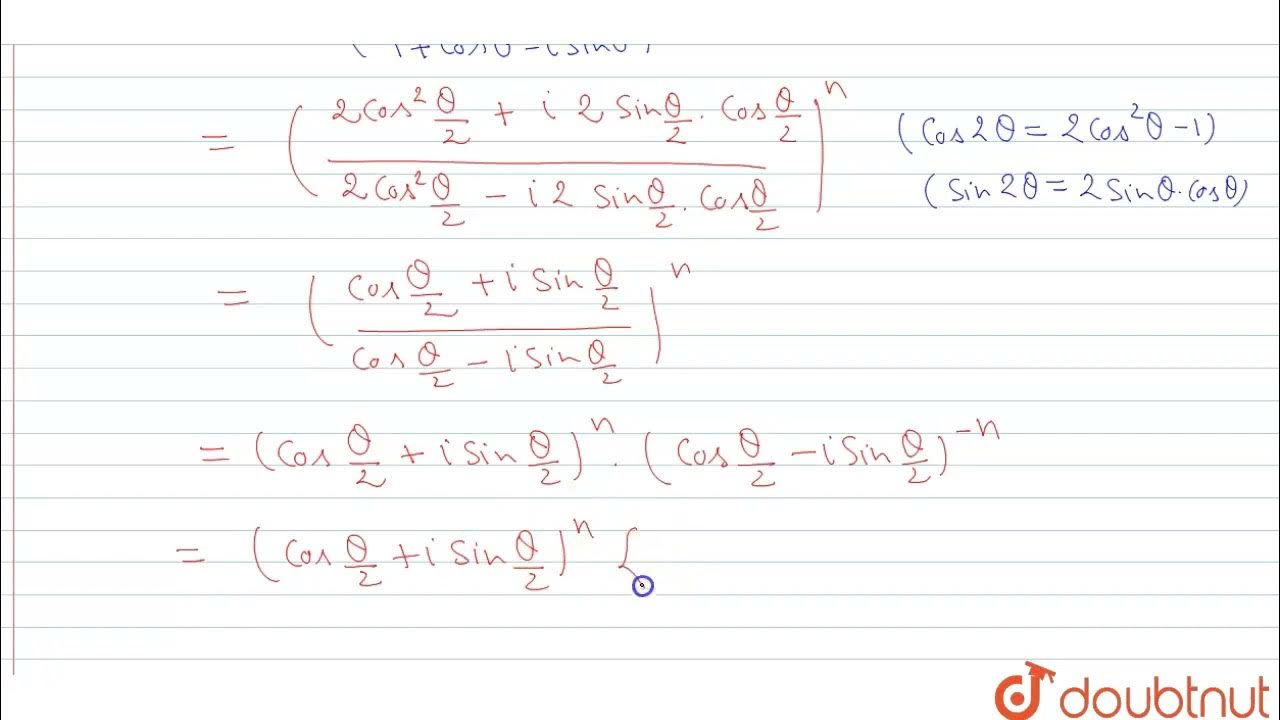 ( 1 + cos θ - i sin θ )
= ( 2 cos² θ/2 + i 2 sin θ/2 . cos θ/2 / 2 cos² θ/2 - i 2 sin θ/2 . cos θ/2 )ⁿ
( cos 2θ = 2 cos² θ - 1 )
( sin 2θ = 2 sin θ . cos θ )
= ( cos θ/2 + i sin θ/2 / cos θ/2 - i sin θ/2 )ⁿ
= ( cos θ/2 + i sin θ/2 )ⁿ . ( cos θ/2 - i sin θ/2 )⁻ⁿ
= ( cos θ/2 + i sin θ/2 )ⁿ {
doubtnut